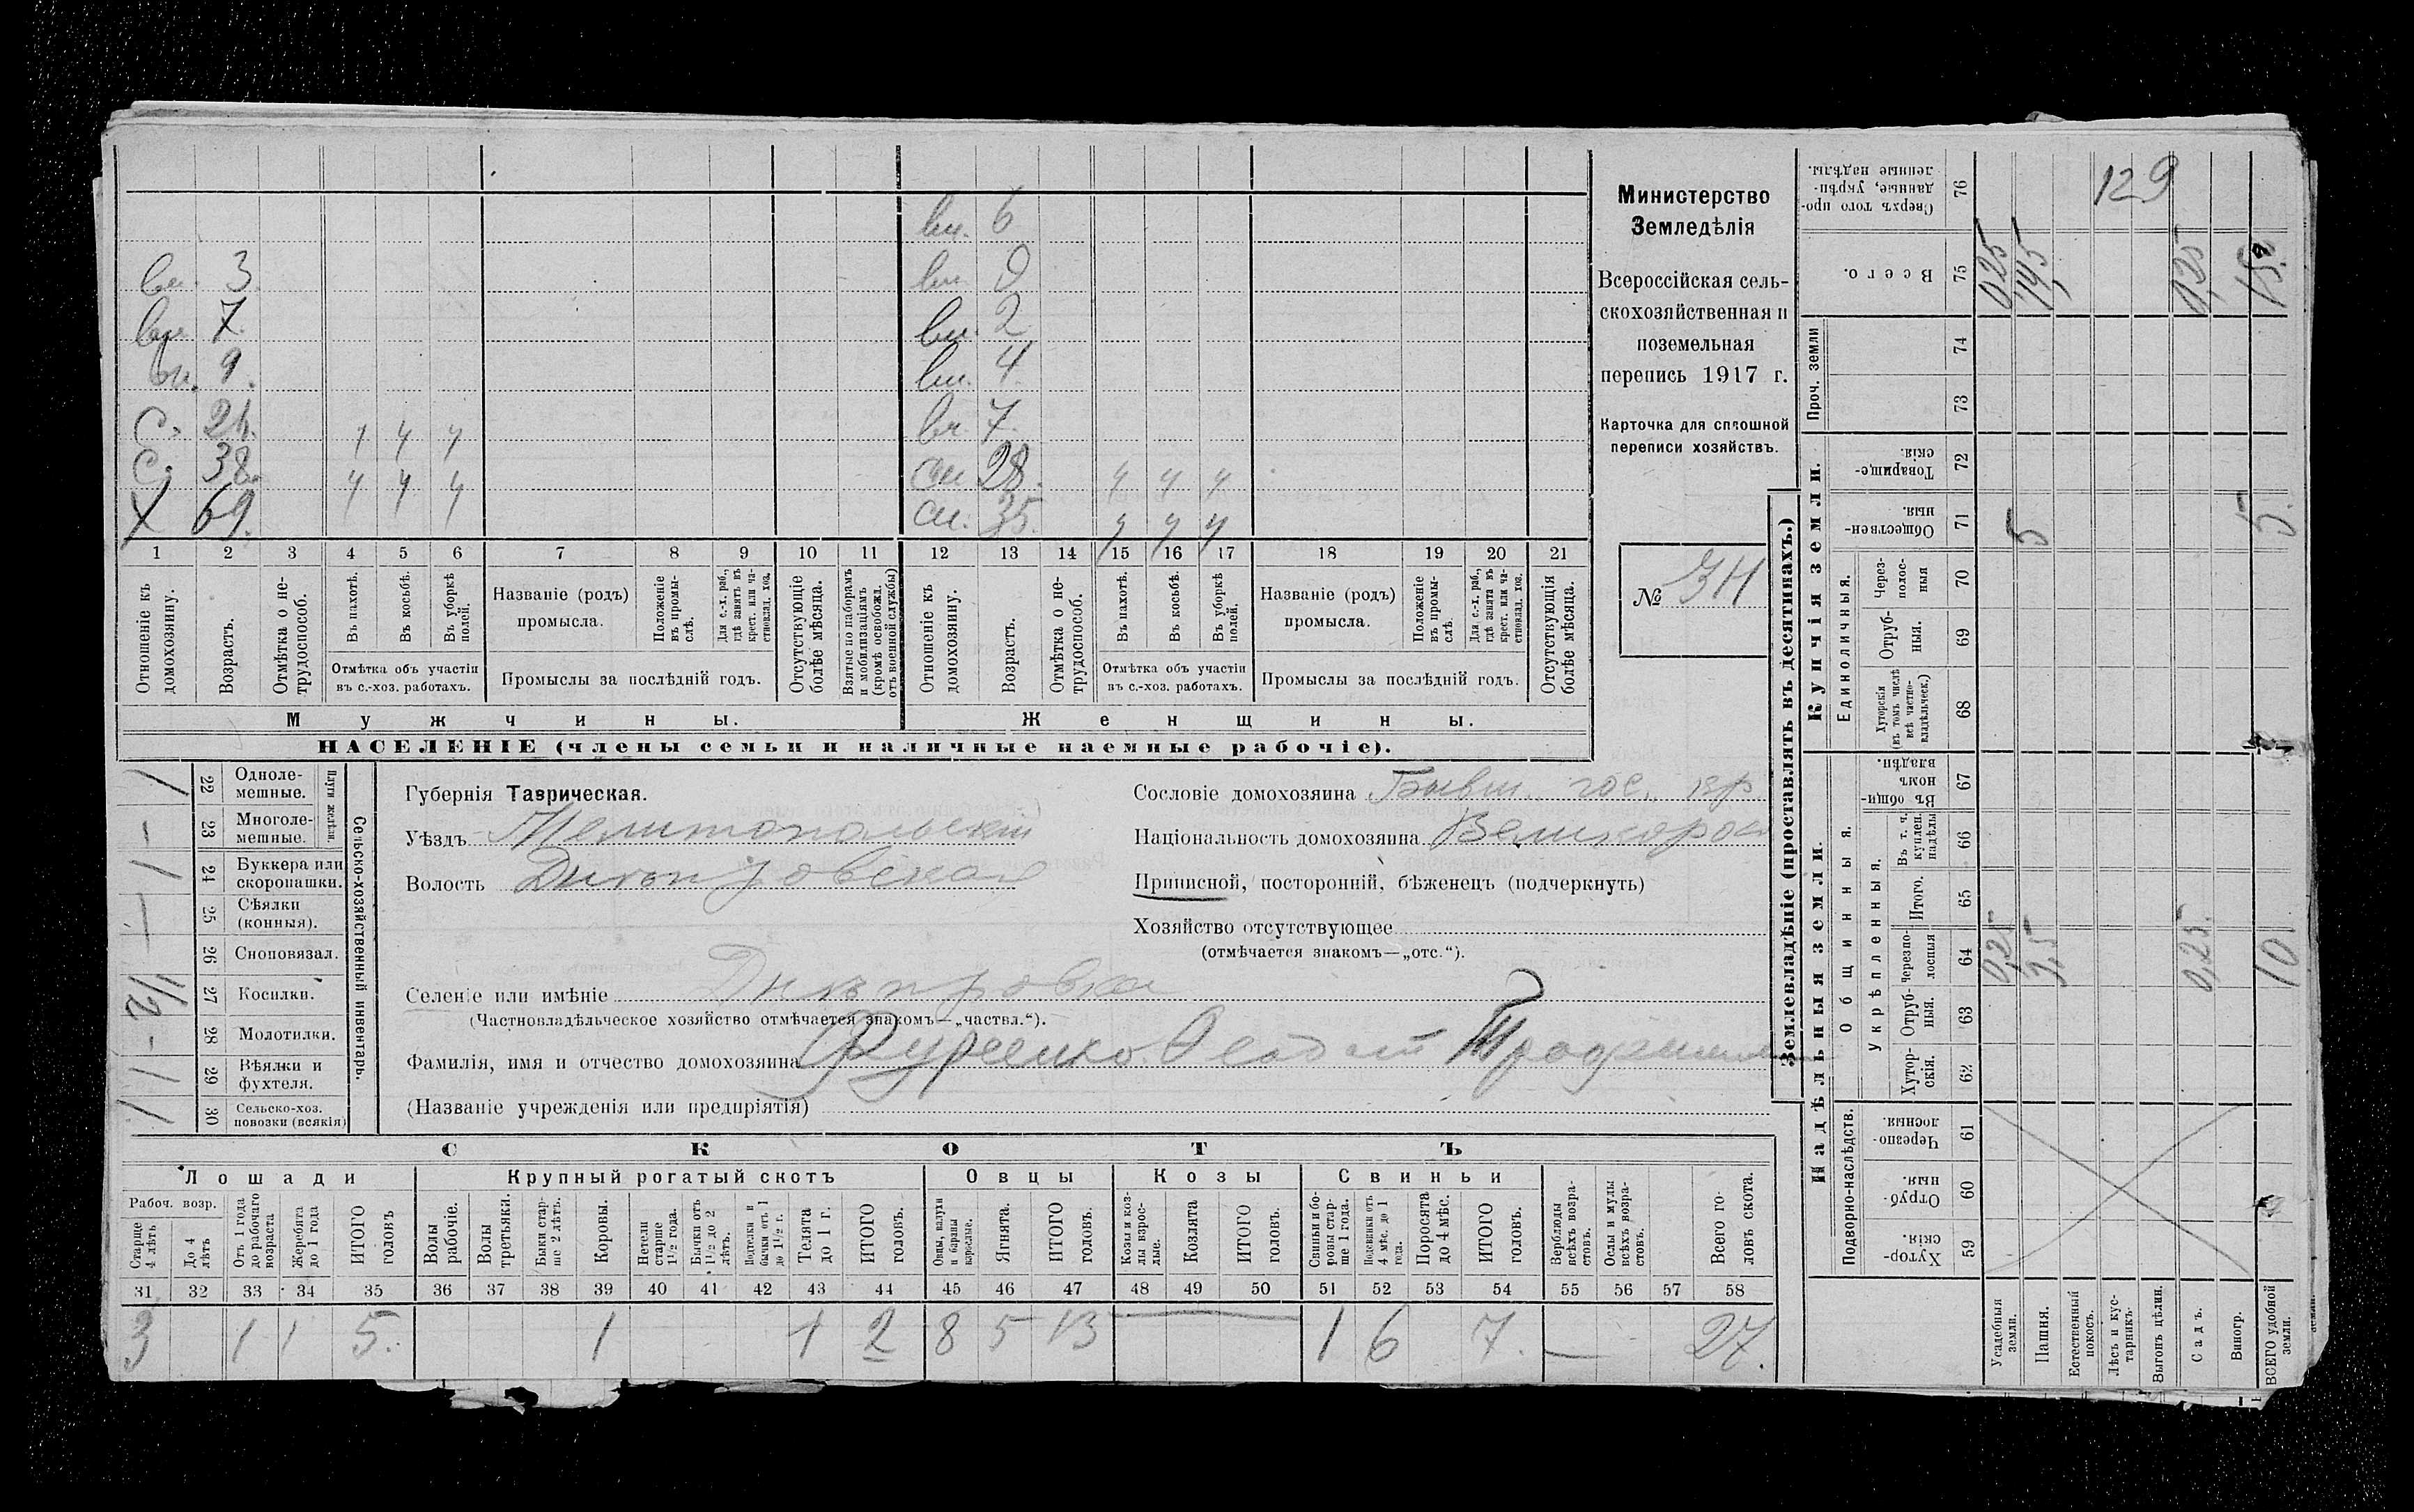 вн. 6
вн. 3. вн. 9
вн. 7. вн. 2
вн. 9. вн. 4
С. 24. ч ч ч вн. 7.
С. 38. ч ч ч сн. 28. ч ч ч
Х 69. сн. 35. ч ч ч
1 2 3 4 5 6 7 8 9 10 11 12 13 14 15 16 17 18 19 20 21
Отношеніе къ домохозяину.
Возрастъ.
Отмѣтка о не-трудоспособ.
Въ пахотѣ.
Въ косьбѣ.
Въ уборкѣ полей.
Отмѣтка объ участіи въ с.-хоз. работахъ.
Названіе (родъ) промысла.
Положеніе въ промы-слѣ.
Для с.-х. раб., гдѣ занятъ въ крест. или ча-стновлад. хоз.
Промыслы за послѣдній годъ.
Отсутствующіе болѣе мѣсяца.
Взятые по наборамъ и мобилизаціямъ (кромѣ освобожд. отъ военной службы)
Отношеніе къ домохозяину.
Возрастъ.
Отмѣтка о не-трудоспособ.
Въ пахотѣ.
Въ косьбѣ.
Въ уборкѣ полей.
Отмѣтка объ участіи въ с.-хоз. работахъ.
Названіе (родъ) промысла.
Положеніе въ промы-слѣ.
Для с.-х. раб., гдѣ занята въ крест. или ча-стновлад. хоз.
Промыслы за послѣдній годъ.
Отсутствующія болѣе мѣсяца.
Мужчины. Женщины.
НАСЕЛЕНІЕ (члены семьи и наличные наемные рабочіе).
Министерство
Земледѣлія
Всероссійская сель-
скохозяйственная и
поземельная
перепись 1917 г.
Карточка для сплошной
переписи хозяйствъ.
№
Плуги желѣзн.
22 Одноле-мешные.
23 Многоле-мешные.
24 Буккера или скоропашки.
25 Сѣялки (конныя).
26 Сноповязал.
27 Косилки.
28 Молотилки.
29 Вѣялки и фухтеля.
30 Сельско-хоз. повозки (всякія)
Сельско-хозяйственный инвентарь.
Губернія Таврическая.
Уѣздъ Мелитопольскій
Волость Днѣпровская
Сословіе домохозяина Бывш. гос. кр.
Національность домохозяина Великорос
Приписной, посторонній, бѣженецъ (подчеркнуть)
Хозяйство отсутствующее
(отмѣчается знакомъ—„отс.“).
Селеніе или имѣніе Днѣпровка
(Частновладѣльческое хозяйство отмѣчается знакомъ—„частвл.“).
Фамилія, имя и отчество домохозяина
(Названіе учрежденія или предпріятія)
СКОТЪ
Лошади Крупный рогатый скотъ Овцы Козы Свиньи
Рабоч. возр.
Старше 4 лѣтъ
До 4 лѣтъ
Отъ 1 года до рабочаго возраста
Жеребята до 1 года
ИТОГО головъ
Волы рабочіе.
Волы третьяки.
Быки стар-ше 2 лѣтъ.
Коровы.
Нетели старше 1½ года.
Бычки отъ 1½ до 2 лѣтъ.
Подтелки и бычки отъ 1 до 1½ г.
Телята до 1 г.
ИТОГО головъ.
Овцы, валухи и бараны взрослые.
Ягнята.
ИТОГО головъ.
Козы и коз-лы взрос-лые.
Козлята
ИТОГО головъ.
Свиньи и бо-ровы стар-ше 1 года.
Подсвинки отъ 4 мѣс. до 1 года.
Поросята до 4 мѣс.
ИТОГО головъ.
Верблюды всѣхъ возра-стовъ.
Ослы и мулы всѣхъ возра-стовъ.
Всего го-ловъ скота.
31 32 33 34 35 36 37 38 39 40 41 42 43 44 45 46 47 48 49 50 51 52 53 54 55 56 57 58
3 1 1 5. 1 1 2 8 5 13 — 1 6 7. — 27.
Землевладѣніе (проставлять въ десятинахъ.)
Надѣльныя земли. Купчія земли. Проч. земли
Подворно-наслѣдств.
Общинныя.
Укрѣпленныя.
Единоличныя.
129
76 Сверхъ того про-данные, укрѣп-ленные надѣлы.
75 Всего. 0,25 14,5 0,25 15.
74
73
72 Товарище-скія.
71 Обществен-ныя. 5 5.
70 Через-полос-ныя
69 Отруб-ныя.
68 Хуторскія (въ томъ числѣ всѣ частно-владѣльческ.)
67 Въ общин-номъ владѣн.
66 Въ т. ч. куплен. надѣлы
65 Итого.
64 Черезпо-лосныя 0,25 9,5 0,25. 10.
63 Отруб-ныя.
62 Хутор-скія.
61 Черезпо-лосныя.
60 Отруб-ныя.
59 Хутор-скія.
Усадебныя земли.
Пашня.
Естественный покосъ.
Лѣсъ и кус-тарникъ.
Выгонъ цѣлин.
Садъ.
Виногр.
ВСЕГО удобной земли.